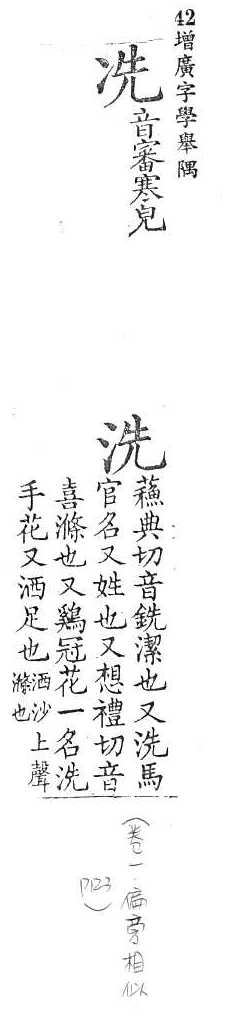 42增廣字學舉隅
冼音審寒皃
洗蘓典切音銑潔也又洗馬
官名又姓也又想禮切音
喜滌也又鷄冠花一名洗
手花又洒足也洒沙上聲滌也
(卷一偏旁相似
P123)